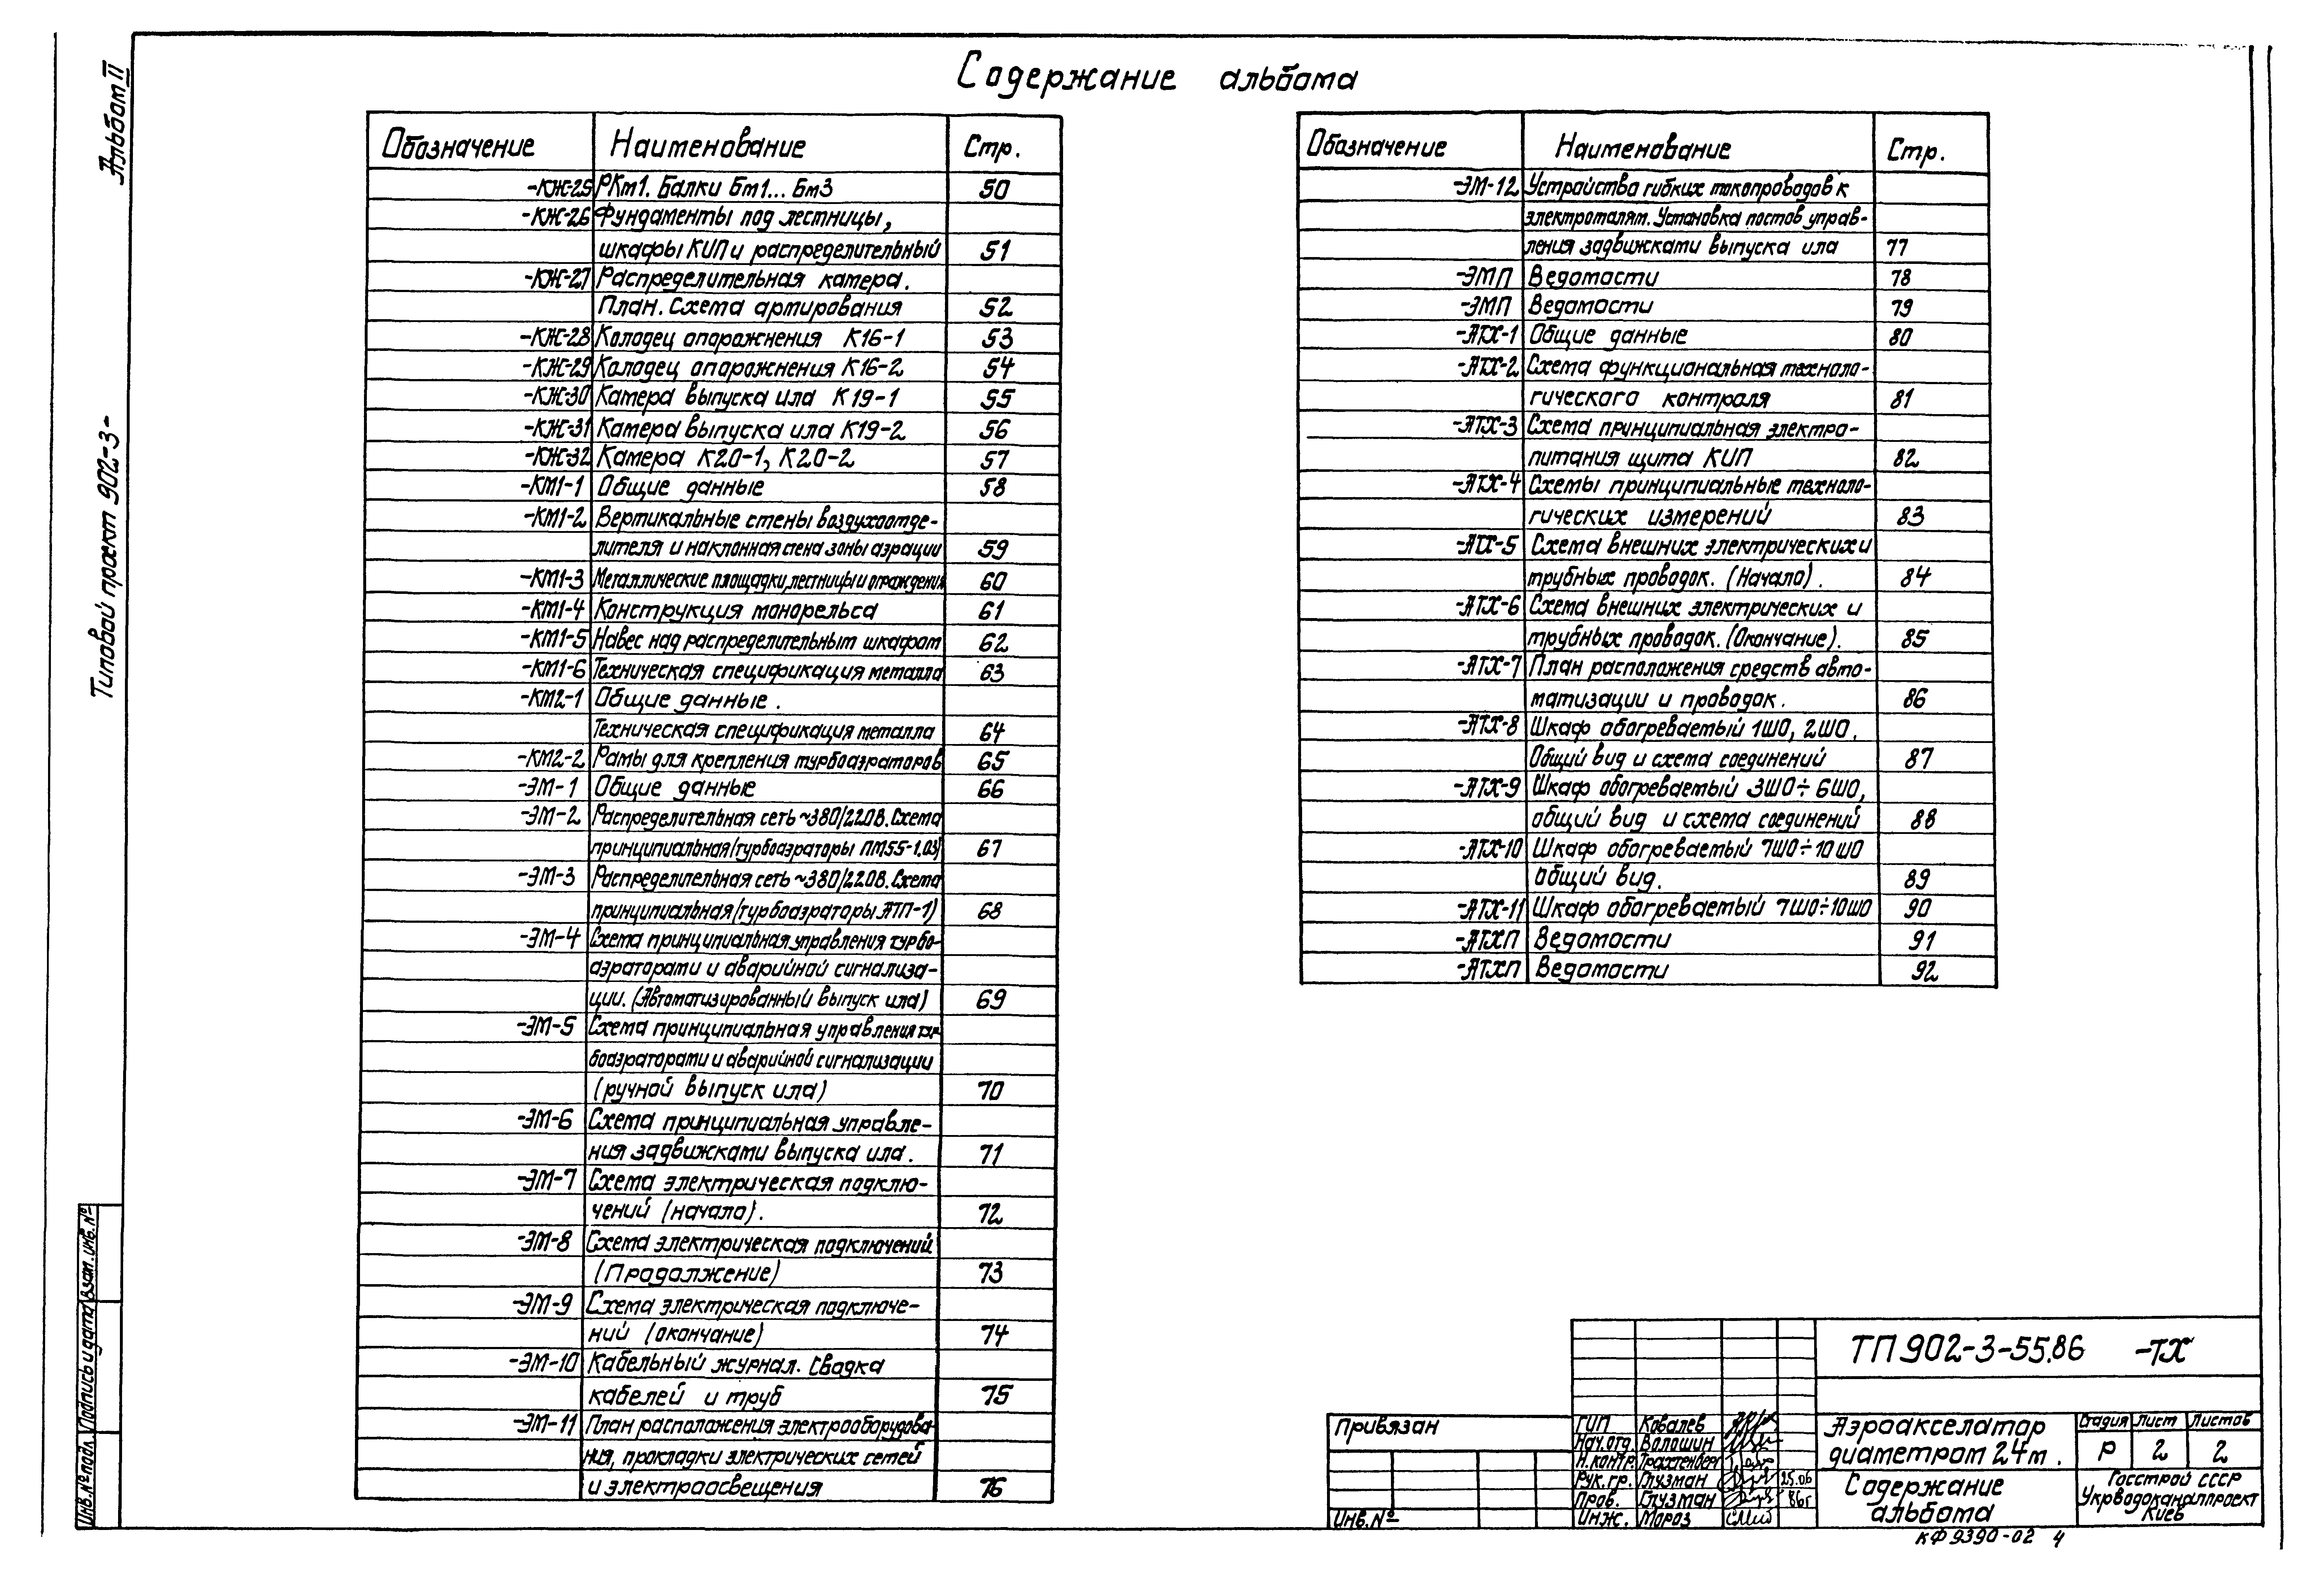 Содержание альбома
Альбом II
Типовой проект 902-3-
Обозначение Наименование Стр.
-КЖ-25 РКм1. Балки Бм1... Бм3 50
-КЖ-26 Фундаменты под лестницы,
шкафы КИП и распределительный 51
-КЖ-27 Распределительная камера.
План. Схема армирования 52
-КЖ-28 Колодец опорожнения К16-1 53
-КЖ-29 Колодец опорожнения К16-2 54
-КЖ-30 Камера выпуска ила К19-1 55
-КЖ-31 Камера выпуска ила К19-2 56
-КЖ-32 Камера К20-1, К20-2 57
-КМ1-1 Общие данные 58
-КМ1-2 Вертикальные стены воздухоотде-
лителя и наклонная стена зоны аэрации 59
-КМ1-3 Металлические площадки, лестницы и ограждения 60
-КМ1-4 Конструкция монорельса 61
-КМ1-5 Навес над распределительным шкафом 62
-КМ1-6 Техническая спецификация металла 63
-КМ2-1 Общие данные.
Техническая спецификация металла 64
-КМ2-2 Рамы для крепления турбоаэраторов 65
-ЭМ-1 Общие данные 66
-ЭМ-2 Распределительная сеть ~380/220В. Схема
принципиальная (турбоаэраторы ПМ55-1.03) 67
-ЭМ-3 Распределительная сеть ~380/220В. Схема
принципиальная (турбоаэраторы АТП-1) 68
-ЭМ-4 Схема принципиальная управления турбо-
аэраторами и аварийной сигнализа-
ции. (Автоматизированный выпуск ила) 69
-ЭМ-5 Схема принципиальная управления тур-
боаэраторами и аварийной сигнализации
(ручной выпуск ила) 70
-ЭМ-6 Схема принципиальная управле-
ния задвижками выпуска ила. 71
-ЭМ-7 Схема электрическая подклю-
чений (начало). 72
-ЭМ-8 Схема электрическая подключений
(Продолжение) 73
-ЭМ-9 Схема электрическая подключе-
ний (окончание) 74
-ЭМ-10 Кабельный журнал. Сводка
кабелей и труб 75
-ЭМ-11 План расположения электрооборудова-
ния, прокладки электрических сетей
и электроосвещения 76
Обозначение Наименование Стр.
-ЭМ-12 Устройства гибких токопроводов к
электроталям. Установка постов управ-
ления задвижками выпуска ила 77
-ЭМП Ведомости 78
-ЭМП Ведомости 79
-АТХ-1 Общие данные 80
-АТХ-2 Схема функциональная техноло-
гического контроля 81
-АТХ-3 Схема принципиальная электро-
питания щита КИП 82
-АТХ-4 Схемы принципиальные техноло-
гических измерений 83
-АТХ-5 Схема внешних электрических и
трубных проводок. (Начало). 84
-АТХ-6 Схема внешних электрических и
трубных проводок. (Окончание). 85
-АТХ-7 План расположения средств авто-
матизации и проводок. 86
-АТХ-8 Шкаф обогреваемый 1ШО, 2ШО.
Общий вид и схема соединений 87
-АТХ-9 Шкаф обогреваемый 3ШО÷6ШО,
общий вид и схема соединений 88
-АТХ-10 Шкаф обогреваемый 7ШО÷10ШО
Общий вид. 89
-АТХ-11 Шкаф обогреваемый 7ШО÷10ШО 90
-АТХП Ведомости 91
-АТХП Ведомости 92
Инв.№подл. Подпись и дата Взам.инв.№
Привязан
Инв.№
ГИП Ковалев
Нач.отд. Волошин
Н.контр. Трахтенберг
Рук.гр. Глузман 25.06
Пров. Глузман 86г
Инж. Мороз
ТП 902-3-55.86 -ТХ
Аэроакселатор
диаметром 24м.
Стадия Лист Листов
Р 2 2
Содержание
альбома
Госстрой СССР
Укрводоканалпроект
Киев
КФ 9390-02 4